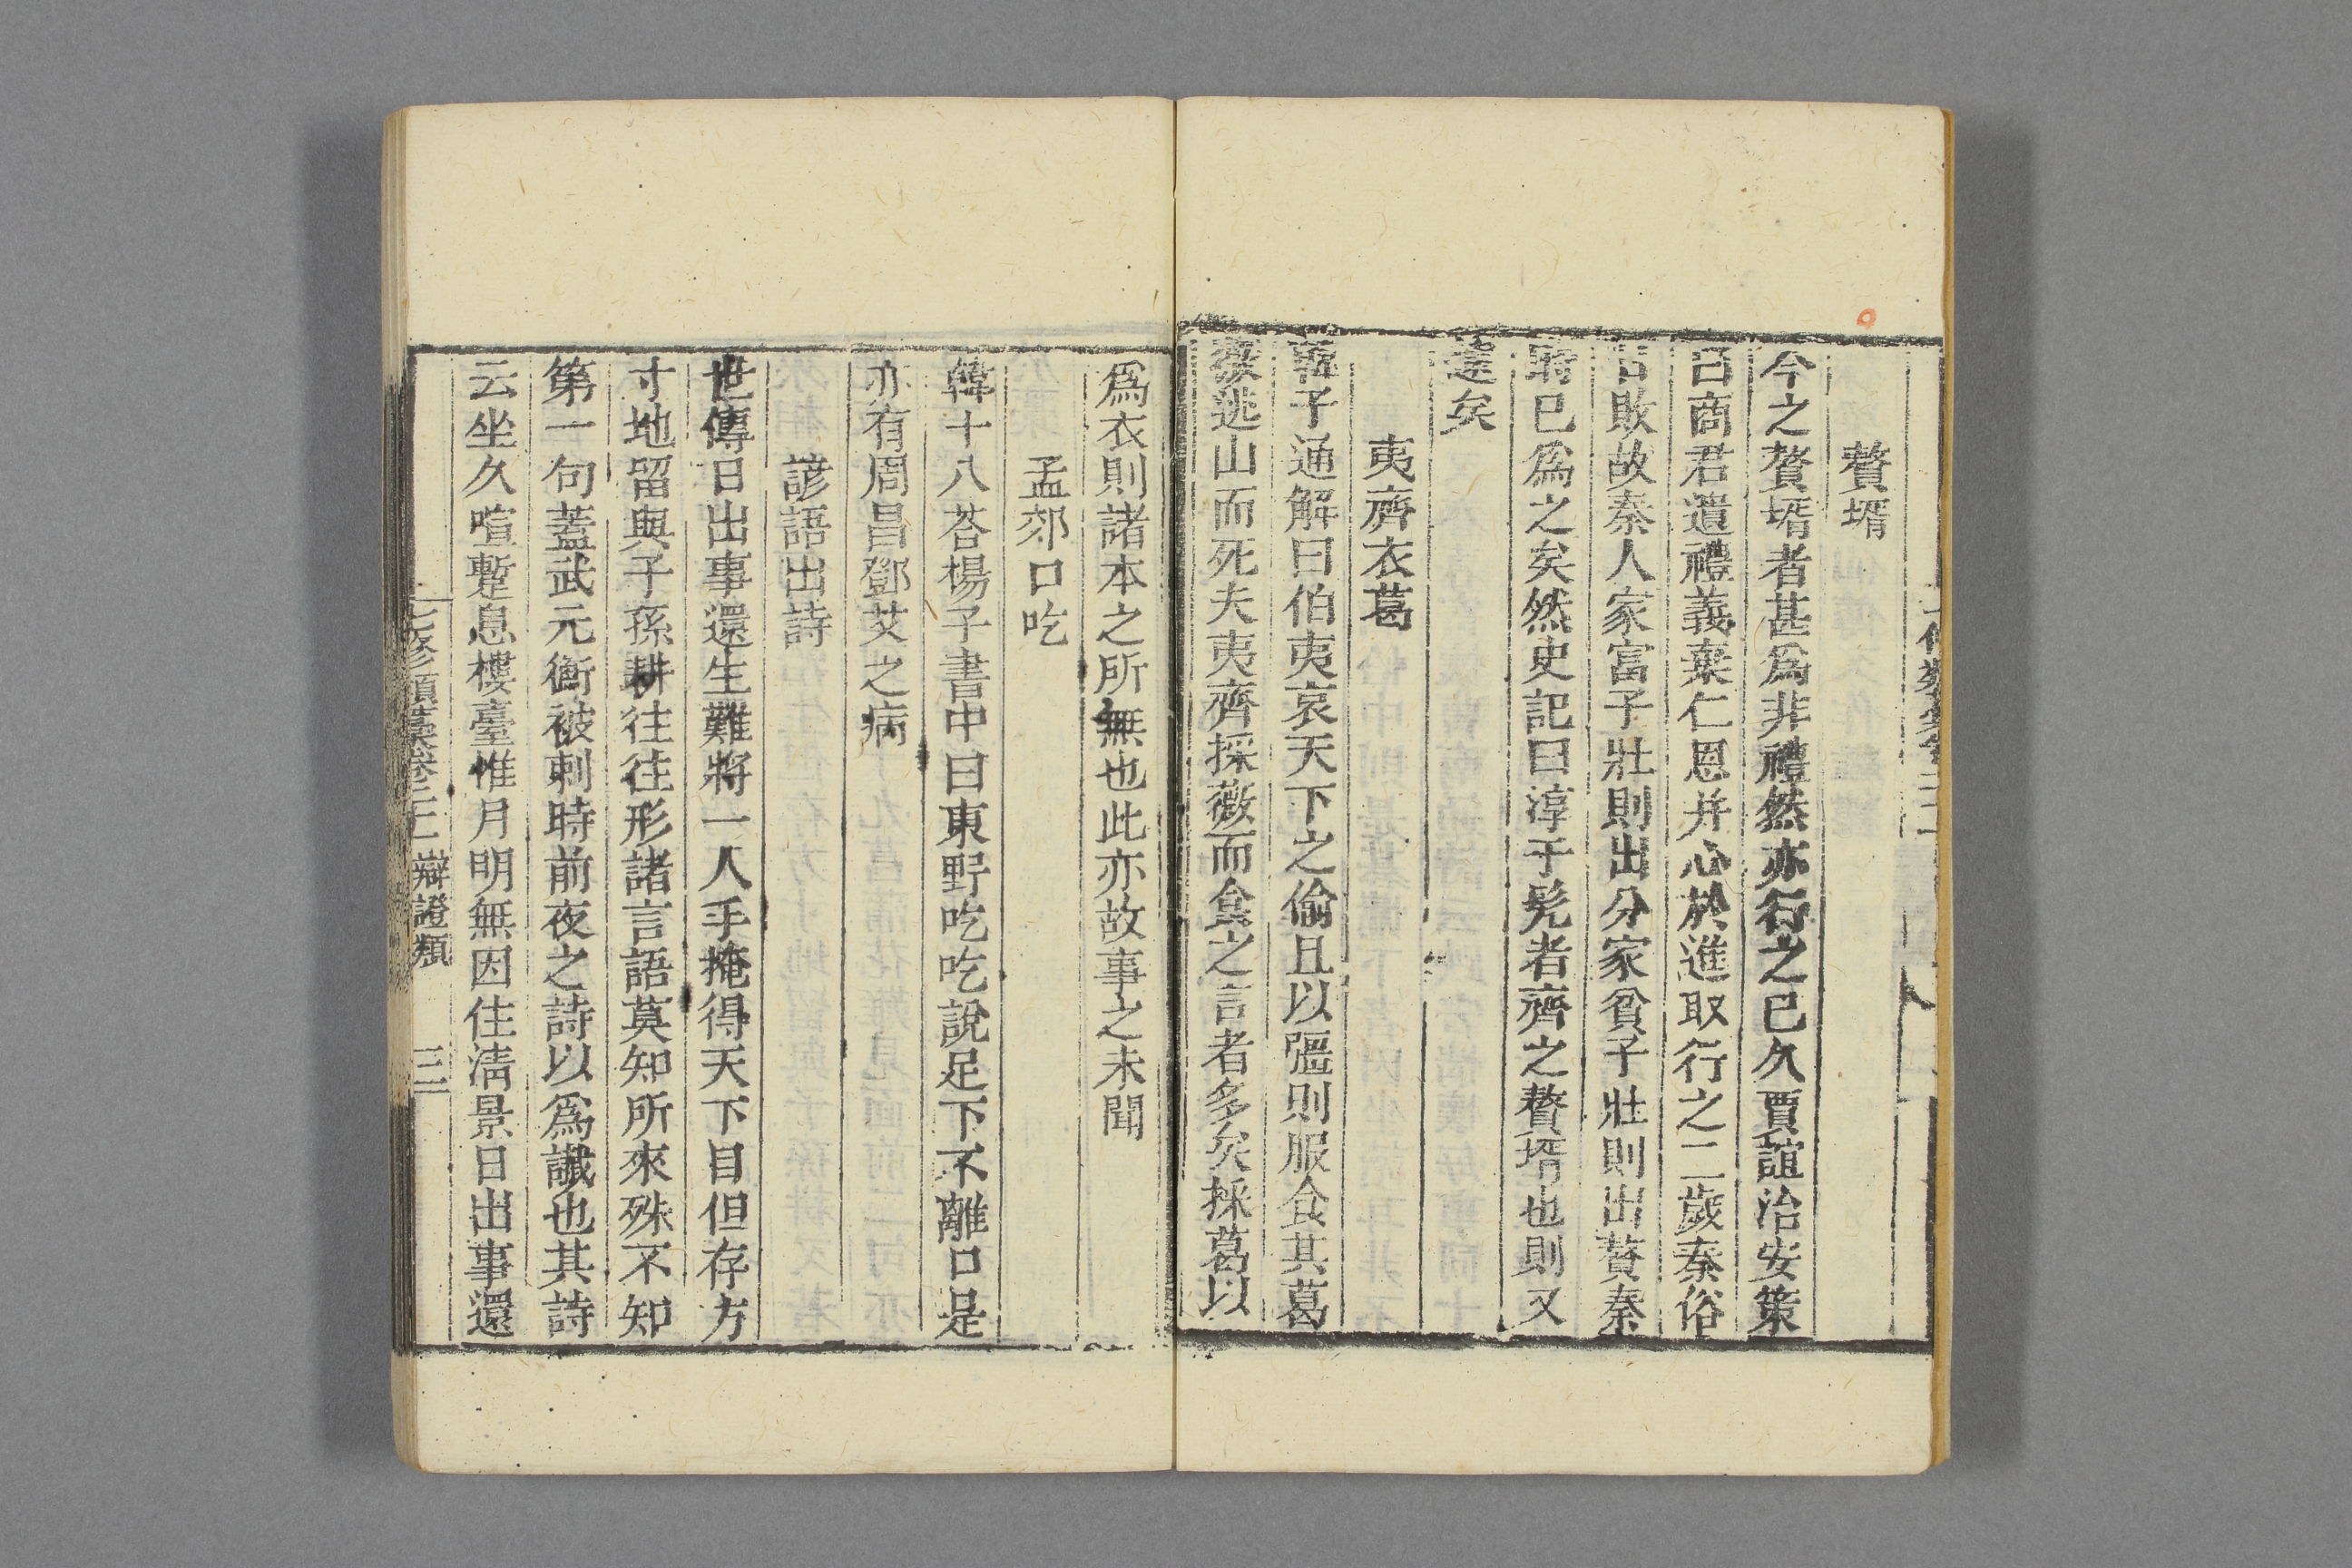 贅壻
今之贅壻者甚爲非禮然亦行之已久賈誼治安策
曰商君遺禮義棄仁恩并心於進取行之二歲秦俗
日敗故秦人家富子壯則出分家貧子壯則出贅秦
時已爲之矣然史記曰淳于髡者齊之贅壻也則又
遠矣
夷齊衣葛
韓子通解曰伯夷哀天下之偷且以彊則服食其葛
薇逃山而死夫夷齊採薇而食之言者多矣採葛以
爲衣則諸本之所無也此亦故事之未聞
孟郊口吃
韓十八荅楊子書中曰東野吃吃說足下不離口是
亦有周昌鄧艾之病
諺語出詩
世傳日出事還生難將一人手掩得天下目但存方
寸地留與子孫耕往往形諸言語莫知所來殊不知
第一句蓋武元衡被刺時前夜之詩以爲讖也其詩
云坐久喧蹔息樓臺惟月明無因住淸景日出事還
七修類藁卷二十二 辯證類 三